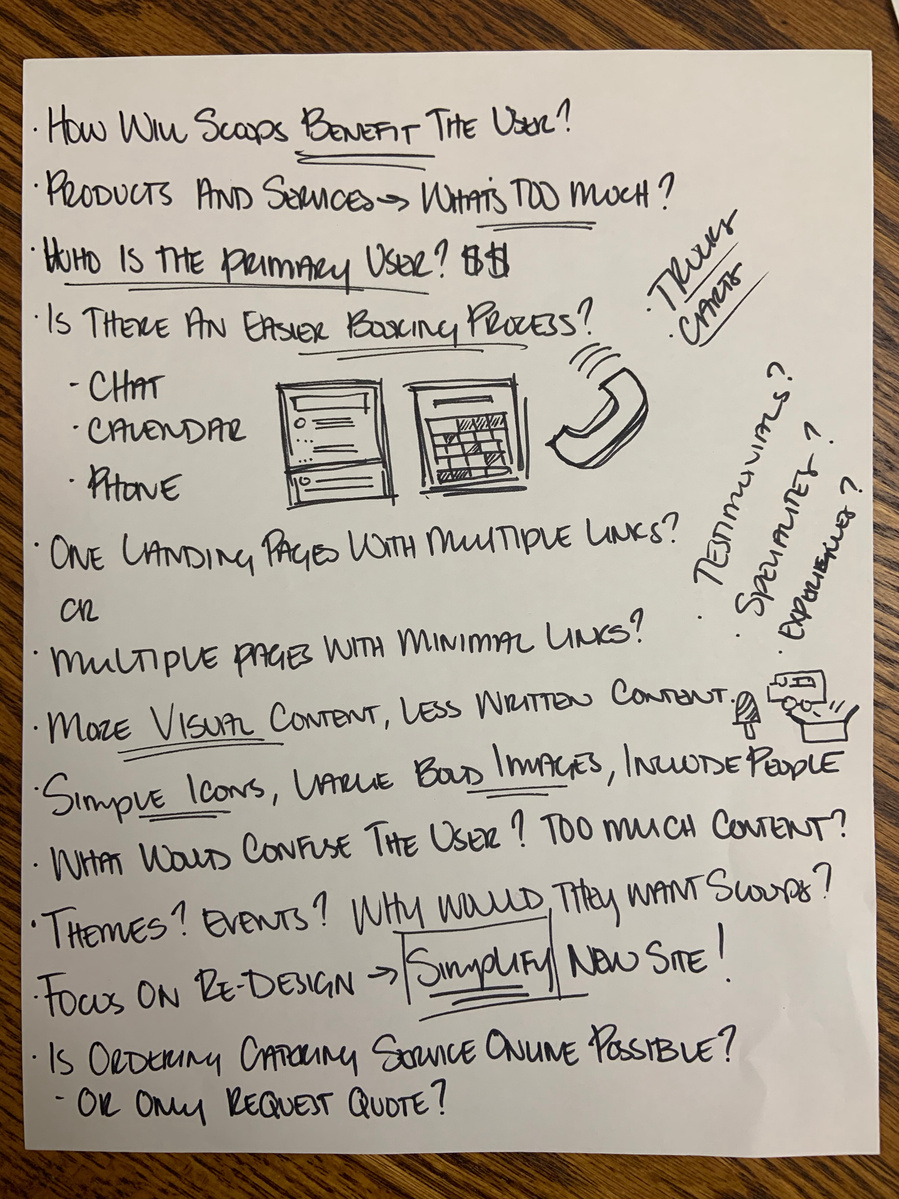 · How Will Scoops Benefit The User?
· Products And Services → What's Too Much?
· Who Is The Primary User? $$
· Trucks
· Carts
· Is There An Easier Booking Process?
- Chat
· Calendar
· Phone
· Testimonials?
· Specialties?
· Experiences?
· One Landing Pages With Multiple Links?
Or
· Multiple Pages With Minimal Links?
· More Visual Content, Less Written Content.
· Simple Icons, Large Bold Images, Include People
· What Would Confuse The User? Too Much Content?
· Themes? Events? Why Would They Want Scoops?
· Focus On Re-Design → Simplify New Site!
· Is Ordering Catering Service Online Possible?
- Or Only Request Quote?